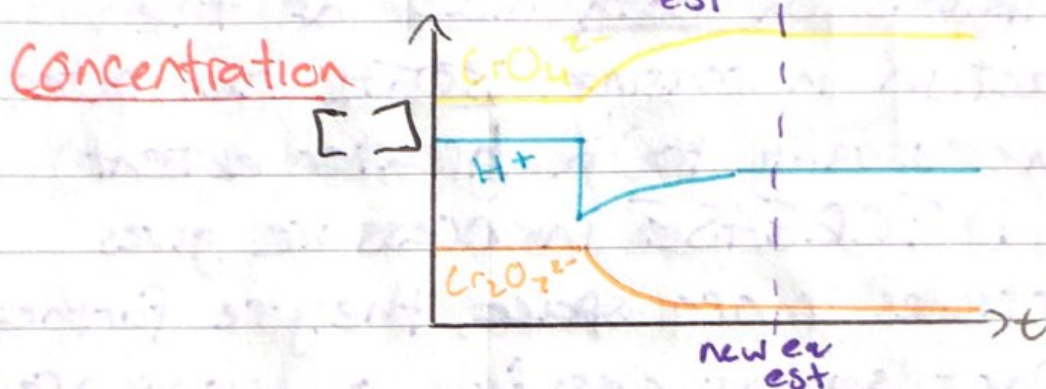 est
Concentration
[ ]
CrO₄²⁻
H⁺
Cr₂O₇²⁻
t
new eq
est